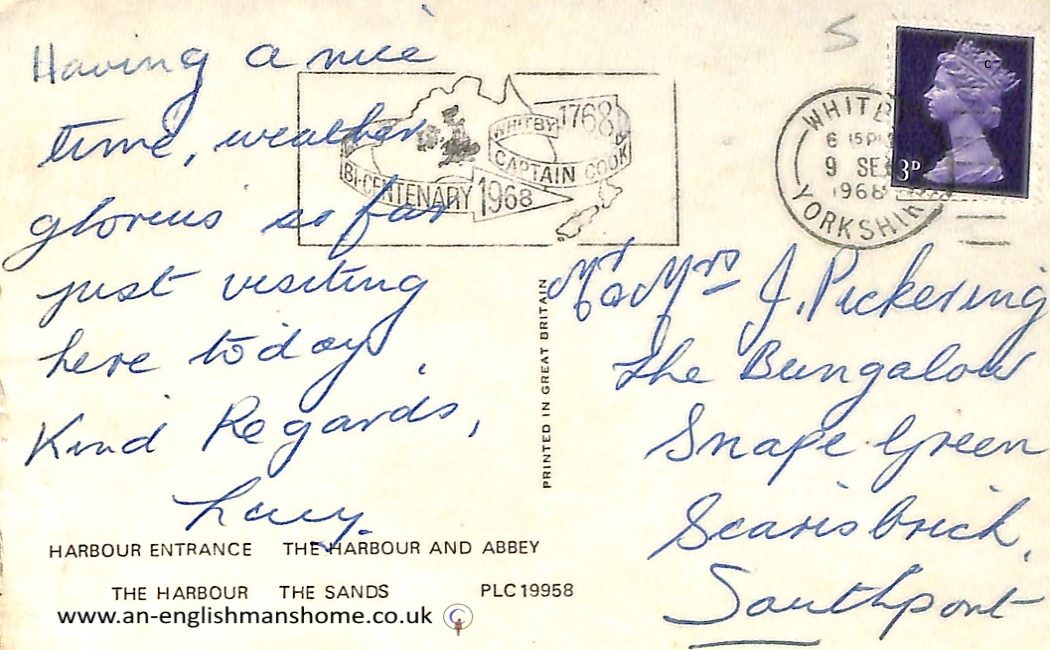 Having a nice
time, weather
glorious so far
just visiting
here today.
Kind Regards,
Lucy.
HARBOUR ENTRANCE THE HARBOUR AND ABBEY
THE HARBOUR THE SANDS PLC19958
www.an-englishmanshome.co.uk ©
PRINTED IN GREAT BRITAIN
WHITBY 1768
CAPTAIN COOK
BI-CENTENARY 1968
S
WHITB
6 15 PM
9 SE
1968
YORKSHIR
3D
Mr & Mrs J. Pickering
The Bungalow
Snape Green
Scarisbrick,
Southport